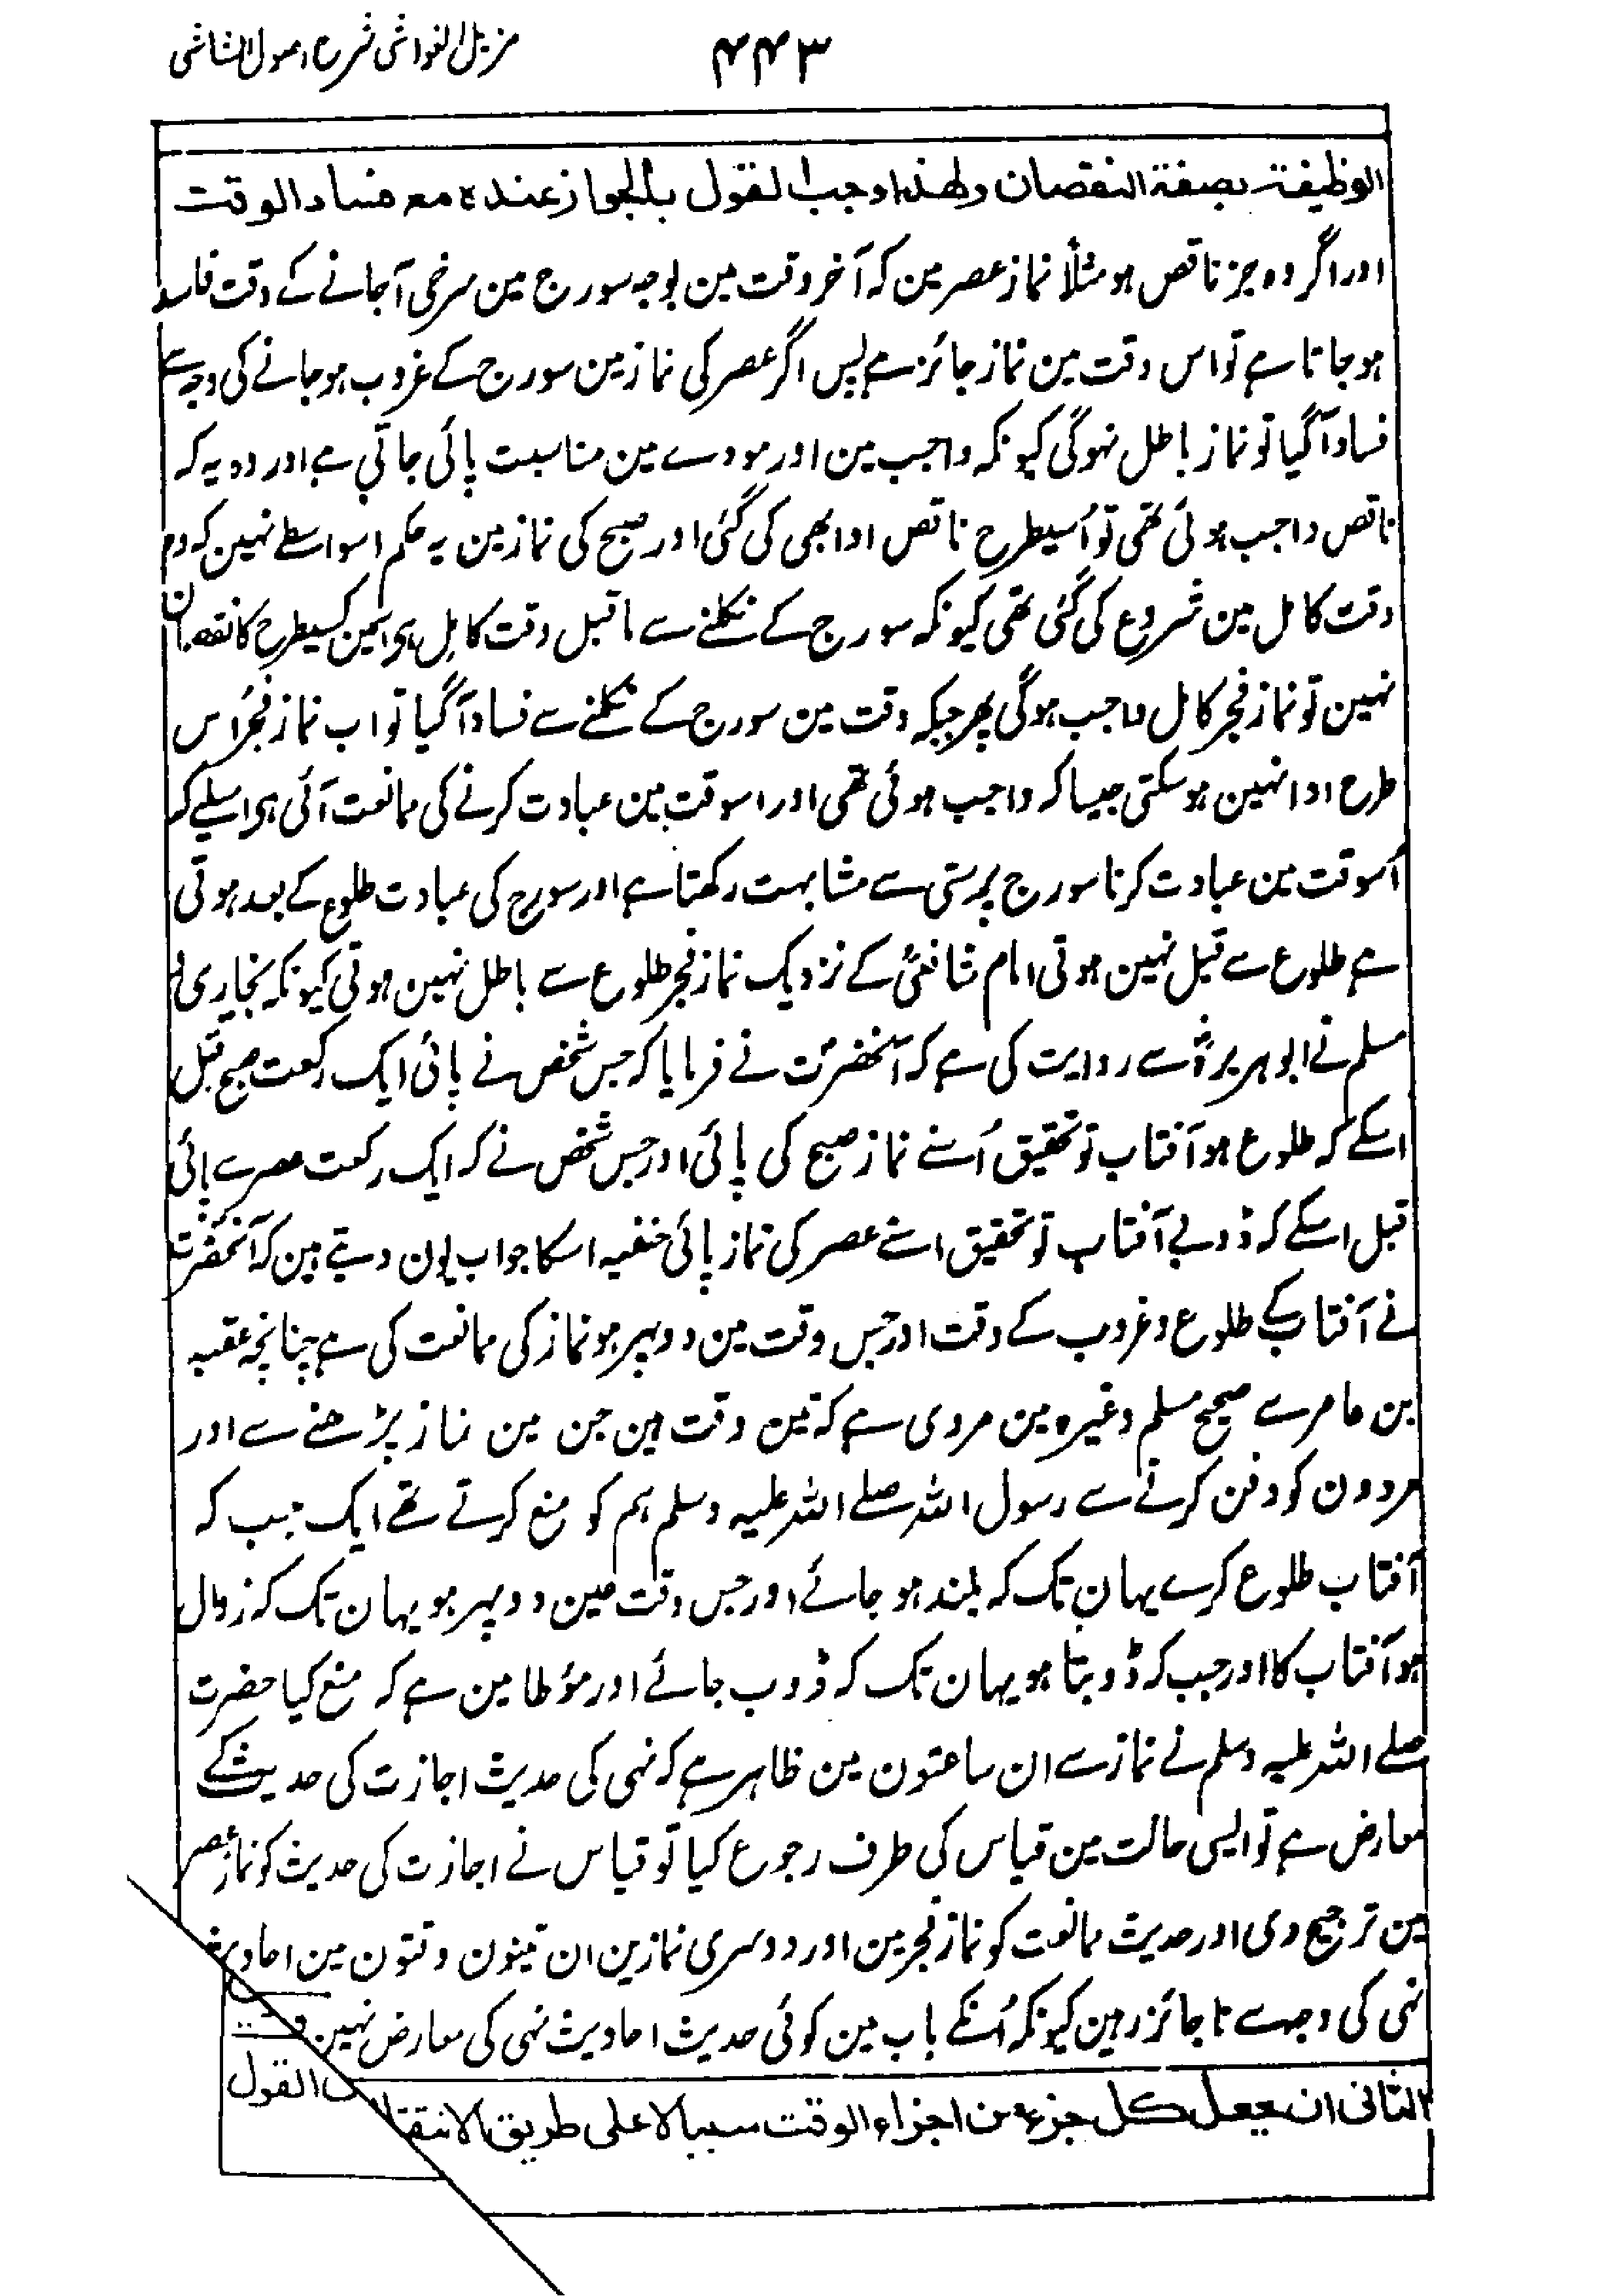 مزیل الغواشی شرح اصول الشاشی
۴۴۳
الوظیفۃ بصفۃ النقصان ولھذا وجب القول بالجواز عندہ مع فساد الوقت
اور اگر وہ جز ناقص ہو مثلاً نماز عصر مین کہ آخر وقت مین بوجہ سورج مین سرخی آجانے کے وقت فاسد
ہو جاتا ہے تو اس وقت مین نماز جائز ہے پس اگر عصر کی نماز مین سورج کے غروب ہو جانے کی وجہ سے
فساد آگیا تو نماز باطل نہوگی کیونکہ واجب مین اور مودے مین مناسبت پائی جاتی ہے اور وہ یہ کہ
ناقص واجب ہوئی تھی تو اُسیطرح ناقص ادا بھی کی گئی اور صبح کی نماز مین یہ حکم اسواسطے نہین کہ وہ
وقت کامل مین شروع کی گئی تھی کیونکہ سورج کے نکلنے سے ماقبل وقت کامل ہی اسمین کسیطرح کا نقصان
نہین تو نماز فجر کامل واجب ہوگی پھر جبکہ وقت مین سورج کے نکلنے سے فساد آگیا تو اب نماز فجر اُس
طرح ادا نہین ہوسکتی جیسا کہ واجب ہوئی تھی اور اسوقت مین عبادت کرنے کی ممانعت آئی ہی اسلیے کہ
اُسوقت مین عبادت کرنا سورج پرستی سے مشابہت رکھتا ہے اور سورج کی عبادت طلوع کے بعد ہوتی
ہے طلوع سے قبل نہین ہوتی امام شافعیؒ کے نزدیک نماز فجر طلوع سے باطل نہین ہوتی کیونکہ بخاری و
مسلم نے ابو ہریرہؓ سے روایت کی ہے کہ آنحضرت نے فرمایا کہ جس شخص نے پائی ایک رکعت صبح قبل
اسکے کہ طلوع ہو آفتاب تو تحقیق اُسنے نماز صبح کی پائی اور جس شخص نے کہ ایک رکعت عصر سے پائی
قبل اسکے کہ ڈوبے آفتاب تو تحقیق اسنے عصر کی نماز پائی حنفیہ اسکا جواب یون دیتے ہین کہ آنحضرت
نے آفتاب کے طلوع و غروب کے وقت اور جس وقت مین دوپہر ہو نماز کی ممانعت کی ہے چنانچہ عقبہ
بن عامر سے صحیح مسلم وغیرہ مین مروی ہے کہ تین وقت ہین جن مین نماز پڑھنے سے اور
مردون کو دفن کرنے سے رسول اللہ صلے اللہ علیہ وسلم ہم کو منع کرتے تھے ایک جب کہ
آفتاب طلوع کرے یہان تک کہ بلند ہو جائے اور جس وقت مین دوپہر ہو یہان تک کہ زوال
ہو آفتاب کا اور جب کہ ڈوبتا ہو یہان تک کہ ڈوب جائے اور مؤطا مین ہے کہ منع کیا حضرت
صلے اللہ علیہ وسلم نے نماز سے ان ساعتون مین ظاہر ہے کہ نہی کی حدیث اجازت کی حدیث کے
معارض ہے تو ایسی حالت مین قیاس کی طرف رجوع کیا تو قیاس نے اجازت کی حدیث کو نماز عصر
مین ترجیح دی اور حدیث ممانعت کو نماز فجر مین اور دوسری نمازین ان تینون وقتون مین احادیث
نہی کی وجہ سے ناجائز رہین کیونکہ اُنکے باب مین کوئی حدیث احادیث نہی کی معارض نہین
الثانی ان یجعل کل جزء من اجزاء الوقت سببا لا علی طریق الانتقال القول